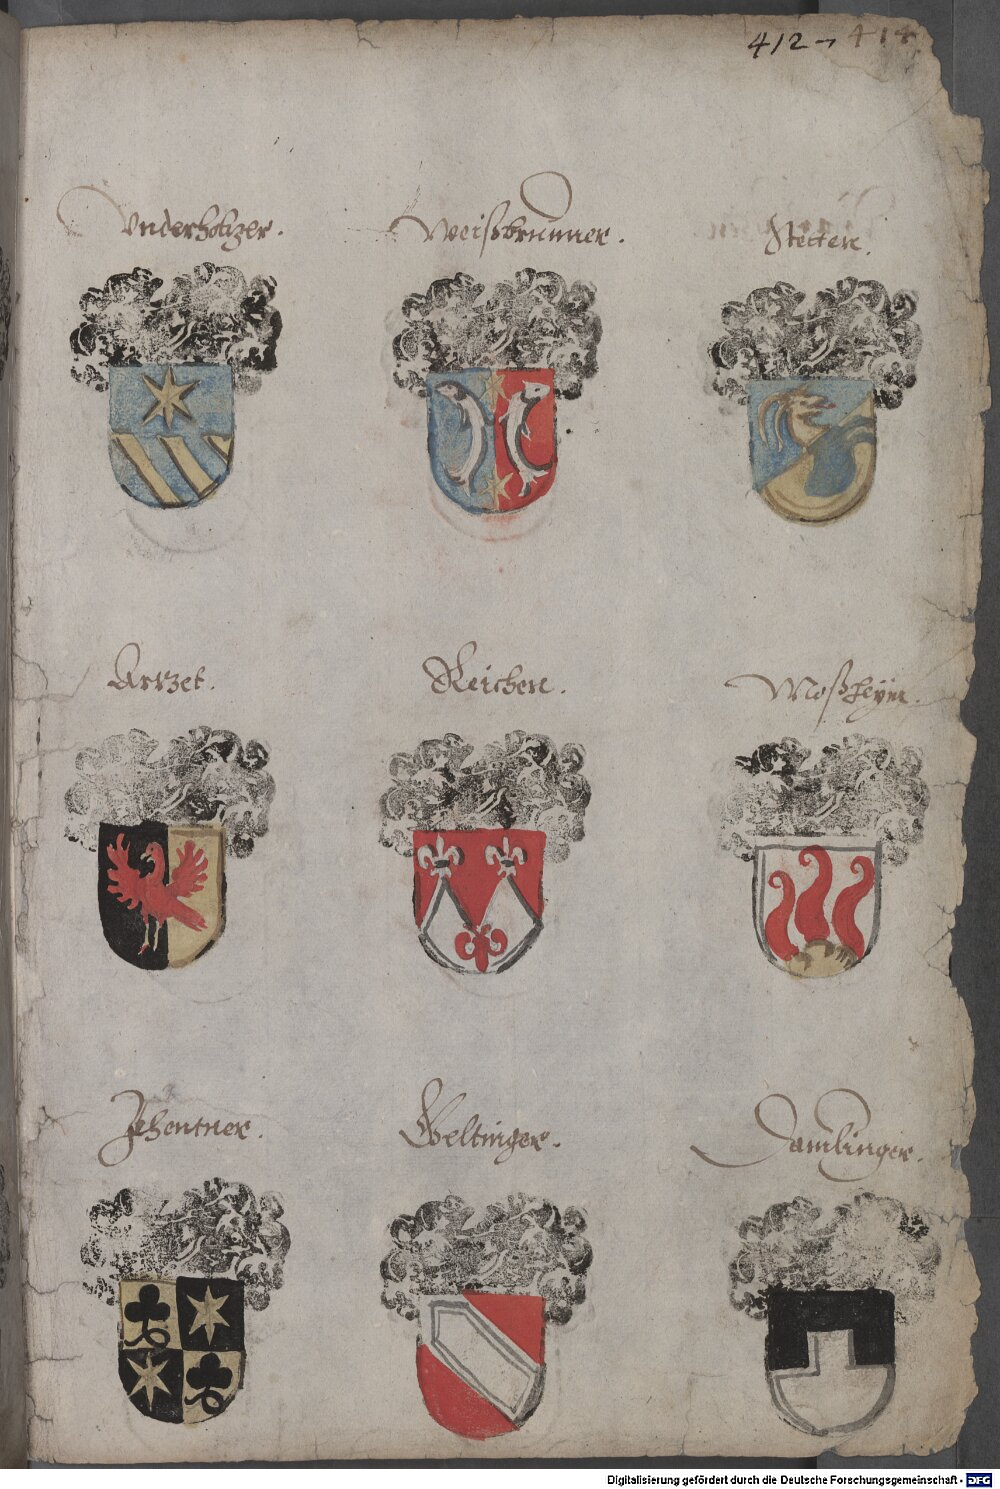 412 - 414
Underholtzer.
Weißbrunner.
Stetten.
Arrzet.
Reichen.
Moßheÿm.
Zehentner.
Geltinger.
Tamlinger.
Digitalisierung gefördert durch die Deutsche Forschungsgemeinschaft - DFG